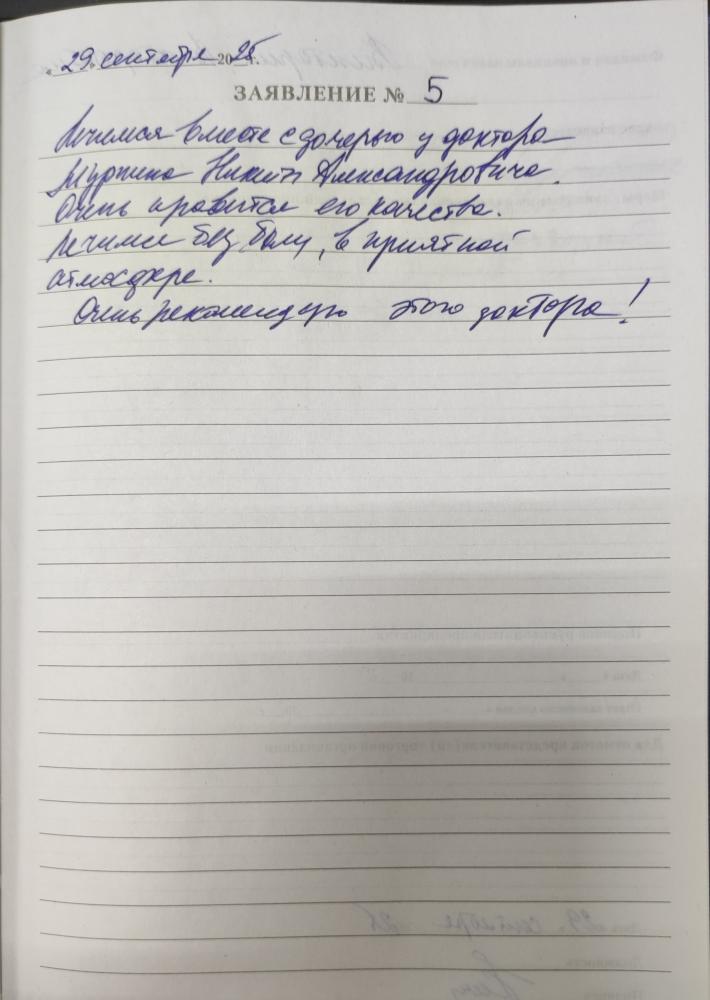 «29» сентября 2025 г.
ЗАЯВЛЕНИЕ № 5
Лечимся вместе с дочерью у доктора
Никиты Александровича.
Очень нравится его качества.
Лечимся без боли, в приятной
атмосфере.
Очень рекомендую этого доктора!